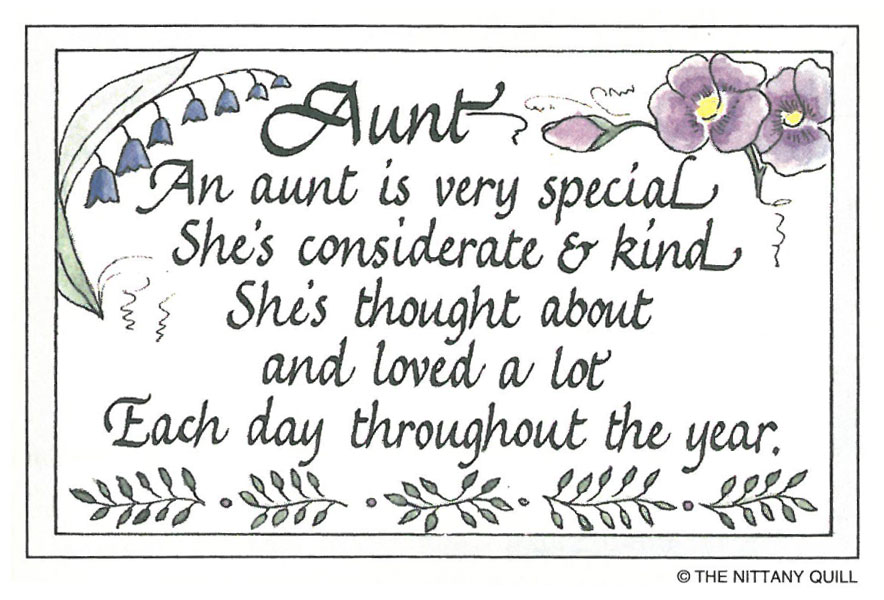 Aunt
An aunt is very special
She's considerate & kind
She's thought about
and loved a lot
Each day throughout the year.
© THE NITTANY QUILL